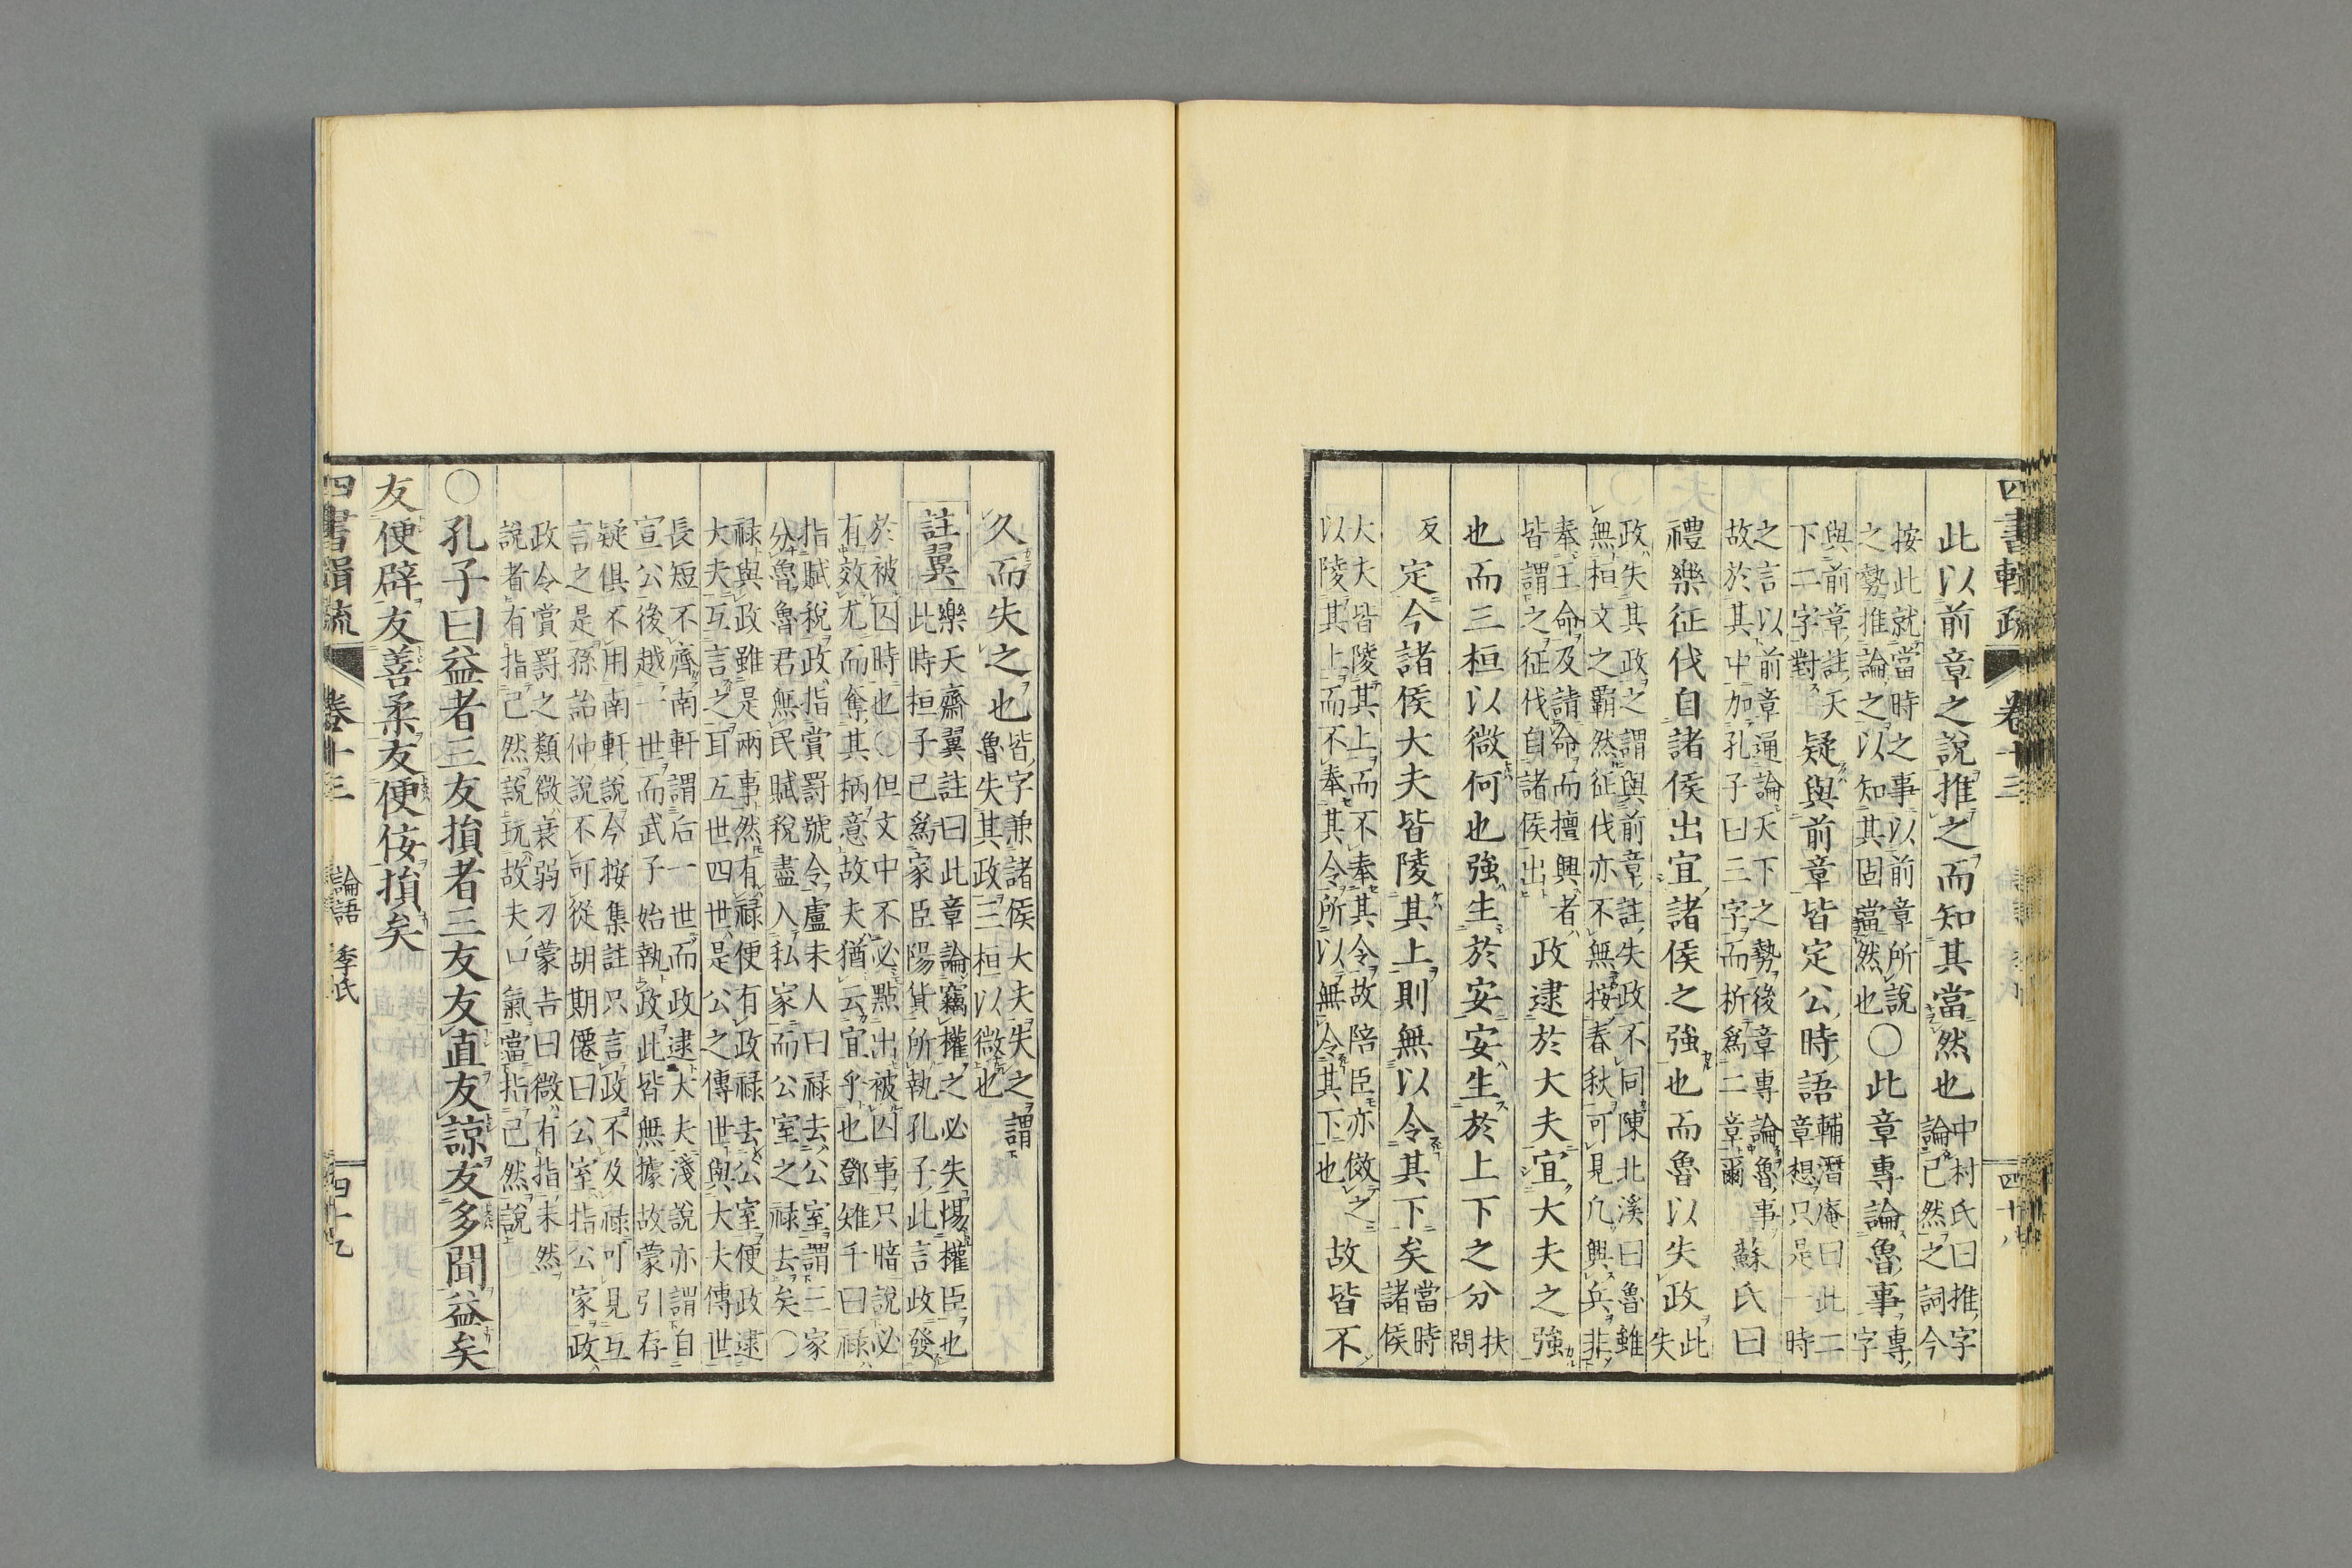 四書輯疏 卷十三
此以前章之說推之而知其當然也中村氏曰推字
論已然之詞今
按此就當時之事以前章所說
之勢推論之以知其固當然也○此章專論魯事專字
與前章註天
下二字對疑與前章皆定公時語輔潛庵曰此二
章想只是一時
之言以前章通論天下之勢後章專論魯事
故於其中加孔子曰三字而析爲二章爾蘇氏曰
禮樂征伐自諸侯出宜諸侯之強也而魯以失政此
失
政失其政之謂與前章註失政不同陳北溪曰魯雖
無桓文之霸然征伐亦不無按春秋可見凡興兵非
奉王命及諸命而擅興者
皆謂之征伐自諸侯出政逮於大夫宜大夫之強
也而三桓以微何也強生於安安生於上下之分扶
問
反定今諸侯大夫皆陵其上則無以令其下矣當時
諸侯
大夫皆陵其上而不奉其令故陪臣亦傚之
以陵其上而不奉其令所以無令其下也故皆不
久而失之也皆字兼諸侯大夫失之謂
魯失其政三桓以微也
註翼樂天齋翼註曰此章論竊權之必失惕權臣也
此時桓子已爲家臣陽貨所執孔子此言政發
於被囚時也○但文中不必點出被囚事只暗說必
有效尤而奪其柄意故夫猶云宜乎也鄧雉千曰祿
指賦稅政指賞罰號令盧未人曰祿去公室謂三家
分魯魯君無民賦稅盡入私家而公室之祿去矣○
祿與政雖是兩事然有祿便有政祿去公室便政逮
大夫互言之耳五世四世是公之傳世與大夫傳世
長短不齊南軒謂后一世而政逮大夫淺說亦謂自
宣公後越一世而武子始執政此皆無據故蒙引存
疑俱不用南軒說今按集註只言政不及祿可見互
言之是孫詒仲說不可從胡期僊曰公室指公家政
政令賞罰之類微衰弱刁蒙吉曰微有指未然
說者有指已然說玩故夫口氣當指已然說
○孔子曰益者三友損者三友友直友諒友多聞益矣
友便辟友善柔友便佞損矣
四書輯疏 卷十三 論語 季氏 四十九